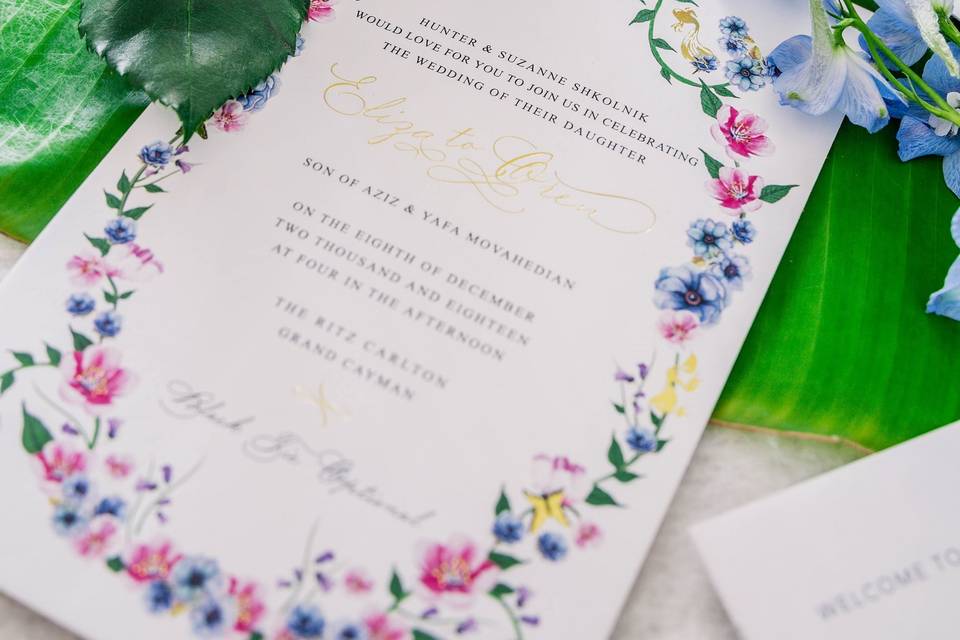 HUNTER & SUZANNE SHKOLNIK
WOULD LOVE FOR YOU TO JOIN US IN CELEBRATING
THE WEDDING OF THEIR DAUGHTER
Eliza to Oren
SON OF AZIZ & YAFA MOVAHEDIAN
ON THE EIGHTH OF DECEMBER
TWO THOUSAND AND EIGHTEEN
AT FOUR IN THE AFTERNOON
THE RITZ CARLTON
GRAND CAYMAN
Black Tie Optional
WELCOME TO